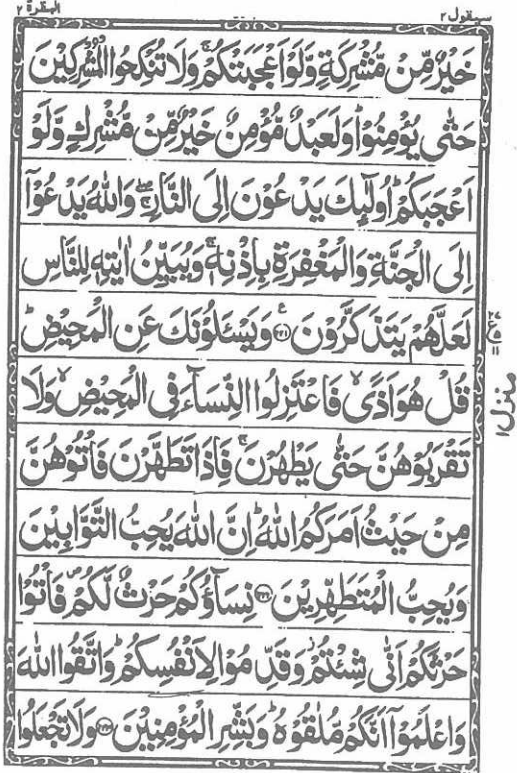 سيقول ٢ البقرة ٢
خَيْرٌ مِّنْ مُّشْرِكَةٍ وَّلَوْ اَعْجَبَتْكُمْ ۚ وَلَا تُنْكِحُوا الْمُشْرِكِيْنَ
حَتّٰى يُؤْمِنُوْا ؕ وَلَعَبْدٌ مُّؤْمِنٌ خَيْرٌ مِّنْ مُّشْرِكٍ وَّلَوْ
اَعْجَبَكُمْ ؕ اُولٰٓئِكَ يَدْعُوْنَ اِلَى النَّارِ ۖۚ وَاللّٰهُ يَدْعُوْٓا
اِلَى الْجَنَّةِ وَالْمَغْفِرَةِ بِاِذْنِهٖ ۚ وَيُبَيِّنُ اٰيٰتِهٖ لِلنَّاسِ
لَعَلَّهُمْ يَتَذَكَّرُوْنَ ﴿۲۲۱﴾ ع وَيَسْـَٔلُوْنَكَ عَنِ الْمَحِيْضِ ؕ
قُلْ هُوَ اَذًى ۙ فَاعْتَزِلُوا النِّسَآءَ فِى الْمَحِيْضِ ۙ وَلَا
تَقْرَبُوْهُنَّ حَتّٰى يَطْهُرْنَ ۚ فَاِذَا تَطَهَّرْنَ فَاْتُوْهُنَّ
مِنْ حَيْثُ اَمَرَكُمُ اللّٰهُ ؕ اِنَّ اللّٰهَ يُحِبُّ التَّوَّابِيْنَ
وَيُحِبُّ الْمُتَطَهِّرِيْنَ ﴿۲۲۲﴾ نِسَآؤُكُمْ حَرْثٌ لَّكُمْ ۪ فَاْتُوْا
حَرْثَكُمْ اَنّٰى شِئْتُمْ ۫ وَقَدِّمُوْا لِاَنْفُسِكُمْ ؕ وَاتَّقُوا اللّٰهَ
وَاعْلَمُوْٓا اَنَّكُمْ مُّلٰقُوْهُ ؕ وَبَشِّرِ الْمُؤْمِنِيْنَ ﴿۲۲۳﴾ وَلَا تَجْعَلُوا
منزل ١